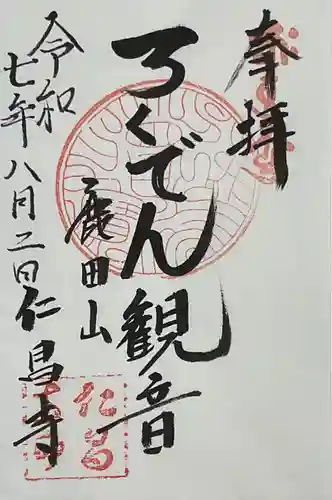 奉拝
ろくでん観音
鹿田山
仁昌寺
令和七年八月二日